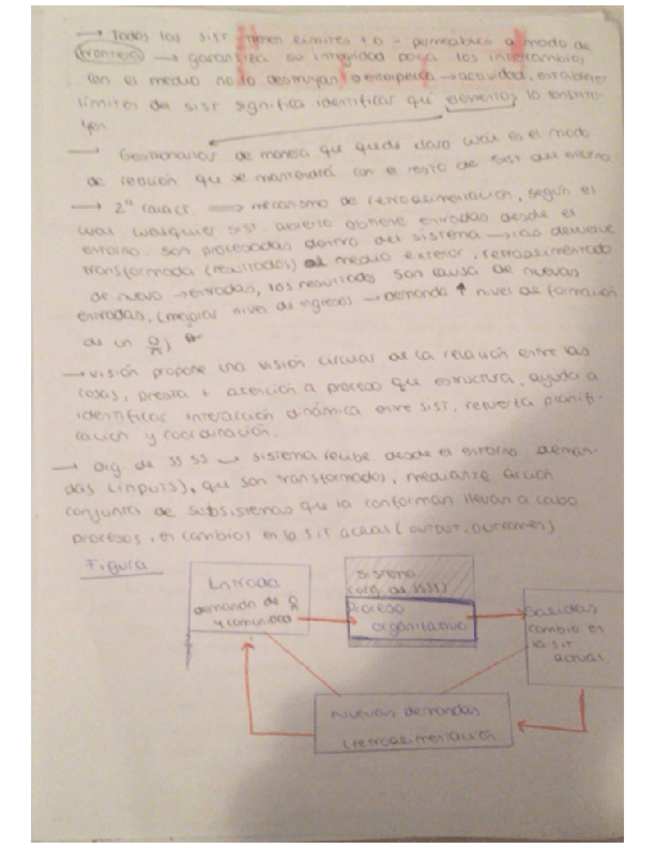 → Todos los sist tienen limites + o - permeables a modo de
frontera → garantiza su integridad para los intercambios
con el medio no lo destruyan o entorpezca → actividad, establecer
limites del sist significa identificar que elementos lo constitu-
yen
→ Gestionarlos de manera que quede claro cual es el modo
de relación que se mantendrá con el resto de sist del entorno
→ 2ª caract. ⇒ mecanismo de retroalimentación, según el
cual cualquier sist. abierto obtiene entradas desde el
entorno. son procesadas dentro del sistema → las devuelve
transformada (resultados) al medio exterior, retroalimentado
de nuevo → entradas, los resultados son causa de nuevas
entradas. (mejorar nivel de ingresos → demanda ↑ nivel de formación
de un )
→ visión propone una visión circular de la relación entre las
cosas, presta + atención a proceso que estructura, ayuda a
identificar interacción dinámica entre sist, refuerza planifi-
cación y coordinación.
→ Org. de SS SS → sistema recibe desde el entorno deman-
das (inputs), que son transformados, mediante acción
conjunta de subsistemas que la conforman llevan a cabo
procesos, en cambios en la sit actual (output, outcomes)
Figura
Entrada
demanda de
y comunidad
sistema
(org. de SSSS)
Proceso
organizativo
Salidas
cambio en
la sit
actual
nuevas demandas
(retroalimentación